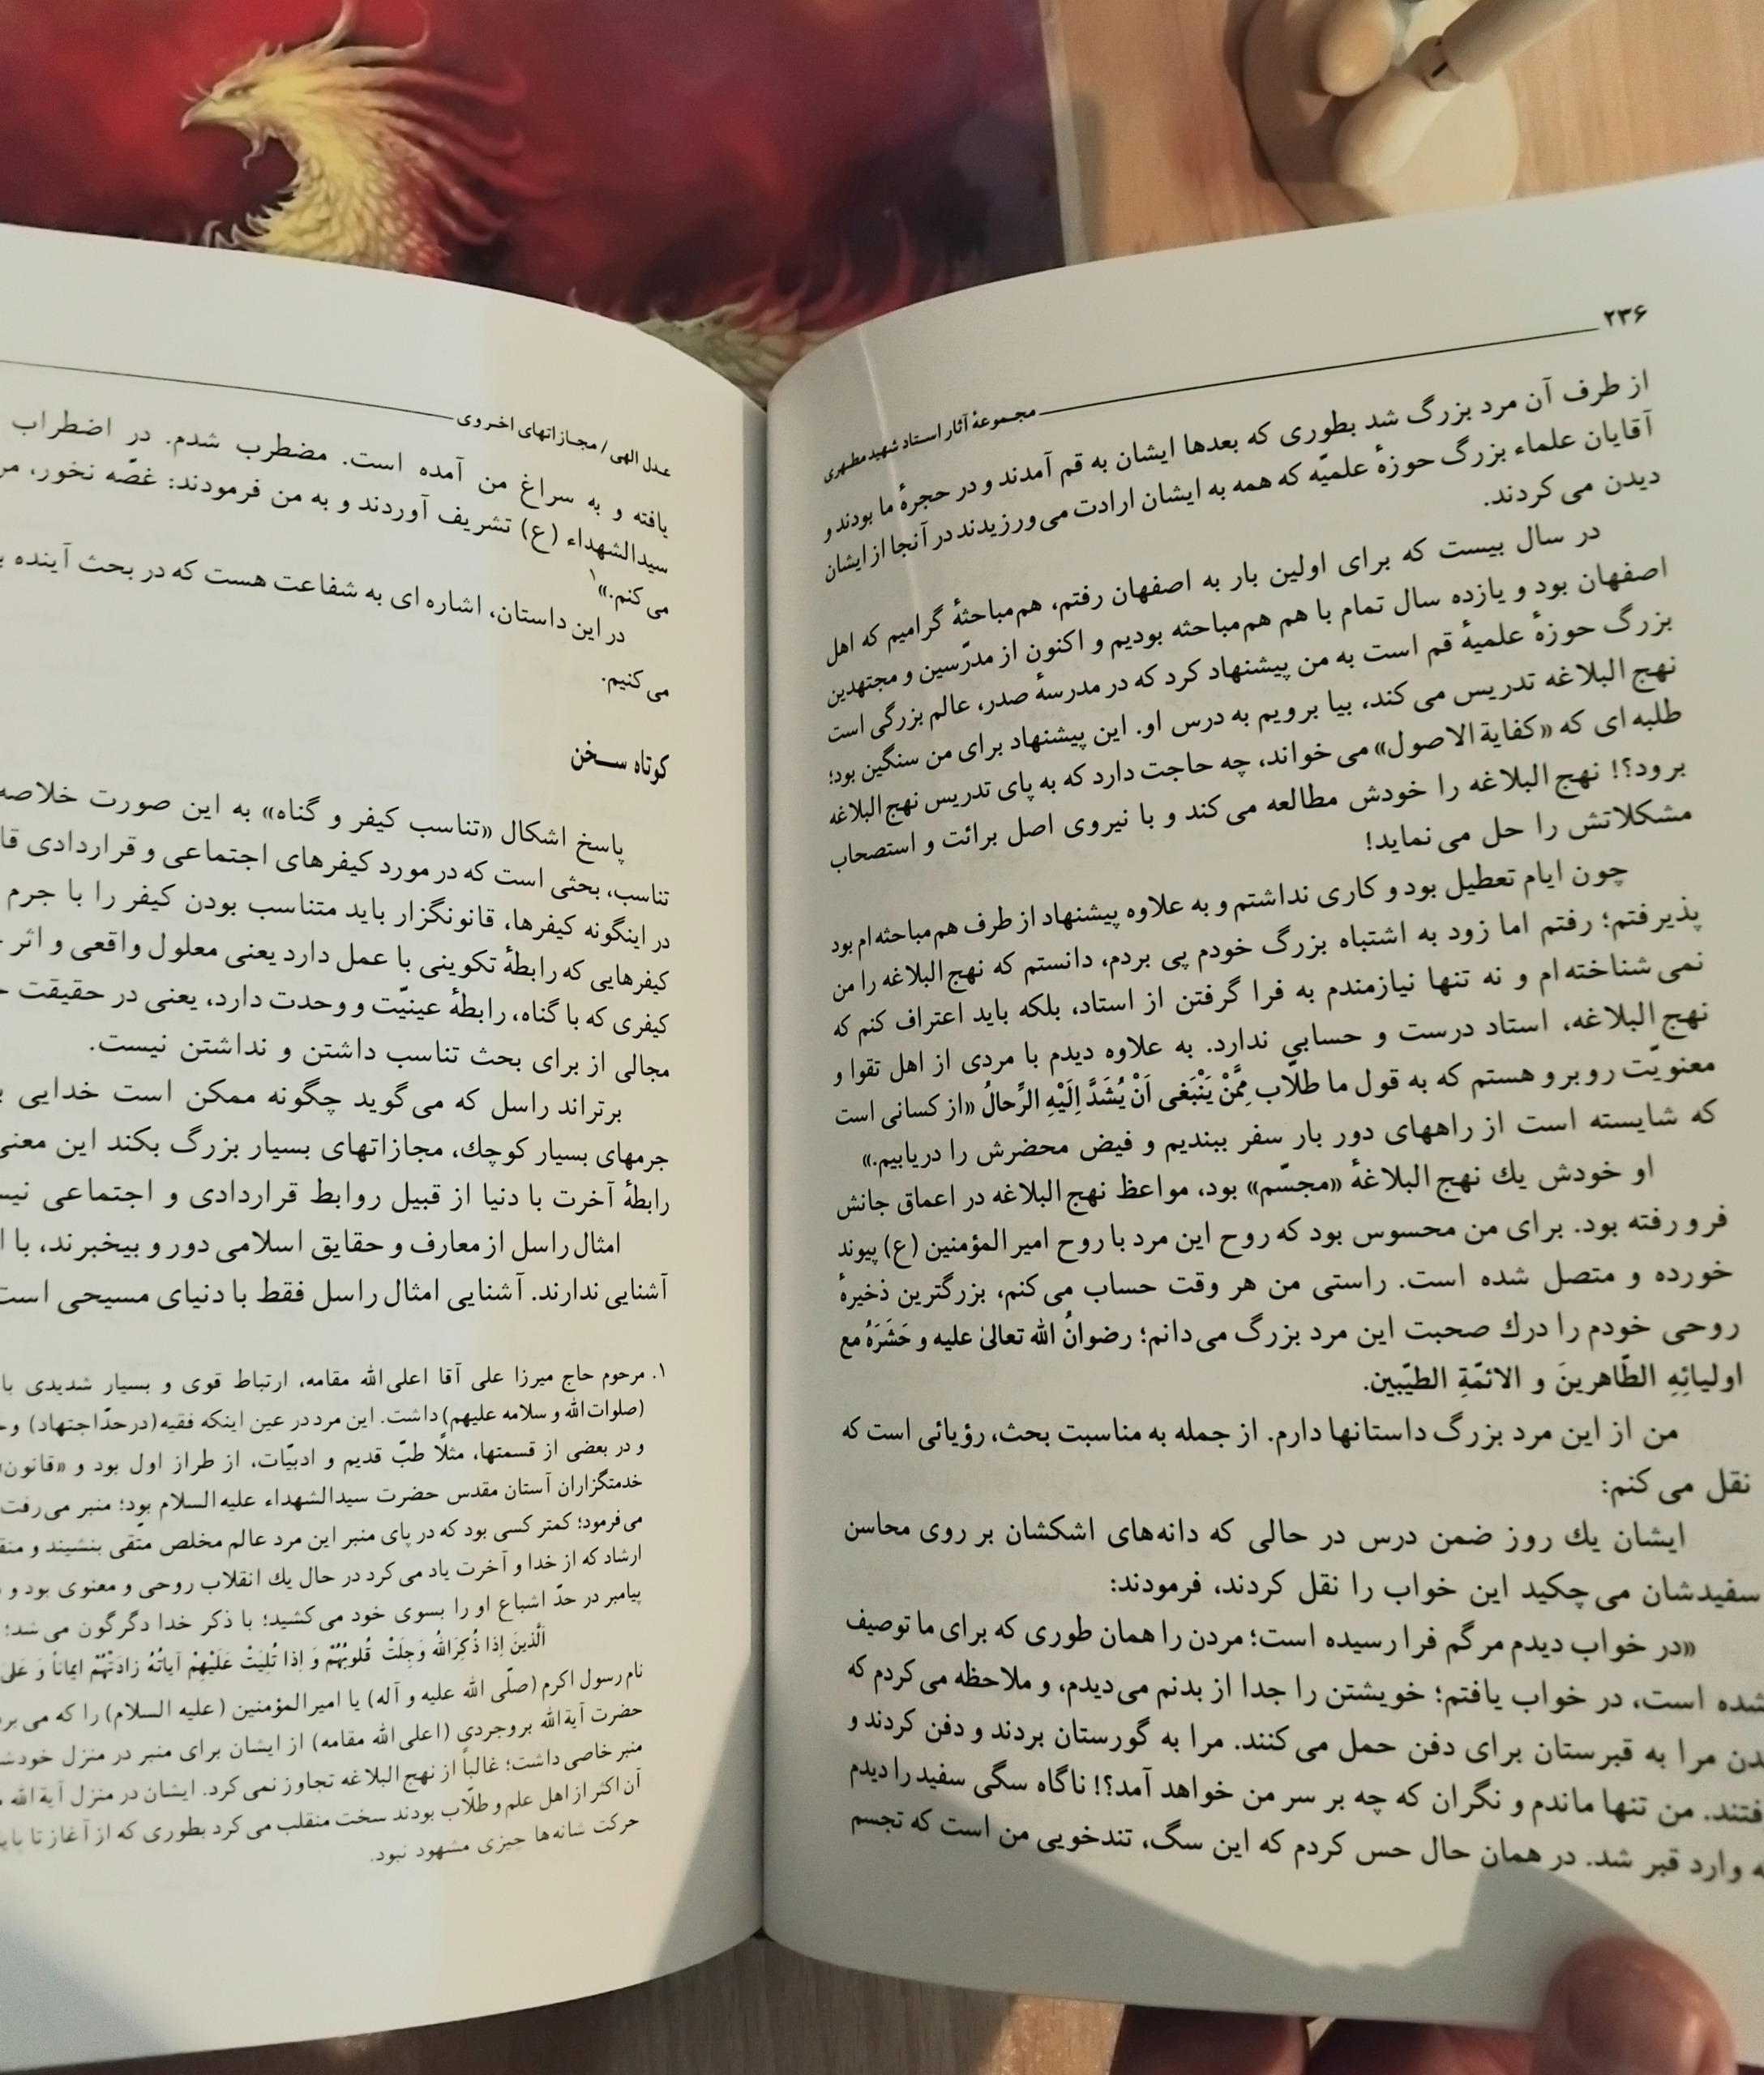 ۲۳۶
مجموعهٔ آثار استاد شهید مطهری
از طرف آن مرد بزرگ شد بطوری که بعدها ایشان به قم آمدند و در حجرهٔ ما بودند و
آقایان علماء بزرگ حوزهٔ علمیّه که همه به ایشان ارادت می‌ورزیدند در آنجا از ایشان
دیدن می‌کردند.
در سال بیست که برای اولین بار به اصفهان رفتم، هم‌مباحثهٔ گرامیم که اهل
اصفهان بود و یازده سال تمام با هم هم‌مباحثه بودیم و اکنون از مدرّسین و مجتهدین
بزرگ حوزهٔ علمیهٔ قم است به من پیشنهاد کرد که در مدرسهٔ صدر، عالم بزرگی است
نهج البلاغه تدریس می‌کند، بیا برویم به درس او. این پیشنهاد برای من سنگین بود؛
طلبه‌ای که «کفایة الاصول» می‌خواند، چه حاجت دارد که به پای تدریس نهج البلاغه
برود؟! نهج البلاغه را خودش مطالعه می‌کند و با نیروی اصل برائت و استصحاب
مشکلاتش را حل می‌نماید!
چون ایام تعطیل بود و کاری نداشتم و به علاوه پیشنهاد از طرف هم‌مباحثه‌ام بود
پذیرفتم؛ رفتم اما زود به اشتباه بزرگ خودم پی بردم، دانستم که نهج البلاغه را من
نمی‌شناخته‌ام و نه تنها نیازمندم به فرا گرفتن از استاد، بلکه باید اعتراف کنم که
نهج البلاغه، استاد درست و حسابی ندارد. به علاوه دیدم با مردی از اهل تقوا و
معنویّت روبرو هستم که به قول ما طلاّب مِمَّنْ یَنْبَغی اَنْ یُشَدَّ اِلَیْهِ الرِّحالُ «از کسانی است
که شایسته است از راههای دور بار سفر ببندیم و فیض محضرش را دریابیم.»
او خودش یك نهج البلاغهٔ «مجسّم» بود، مواعظ نهج البلاغه در اعماق جانش
فرو رفته بود. برای من محسوس بود که روح این مرد با روح امیر المؤمنین (ع) پیوند
خورده و متصل شده است. راستی من هر وقت حساب می‌کنم، بزرگترین ذخیرهٔ
روحی خودم را درك صحبت این مرد بزرگ می‌دانم؛ رضوانُ الله تعالیٰ علیه و حَشَرَهُ مع
اولیائِهِ الطّاهرینَ و الائمّةِ الطیّبین.
من از این مرد بزرگ داستانها دارم. از جمله به مناسبت بحث، رؤیائی است که
نقل می‌کنم:
ایشان یك روز ضمن درس در حالی که دانه‌های اشکشان بر روی محاسن
سفیدشان می‌چکید این خواب را نقل کردند، فرمودند:
«در خواب دیدم مرگم فرا رسیده است؛ مردن را همان طوری که برای ما توصیف
شده است، در خواب یافتم؛ خویشتن را جدا از بدنم می‌دیدم، و ملاحظه می‌کردم که
مرا به قبرستان برای دفن حمل می‌کنند. مرا به گورستان بردند و دفن کردند و
من تنها ماندم و نگران که چه بر سر من خواهد آمد؟! ناگاه سگی سفید را دیدم
وارد قبر شد. در همان حال حس کردم که این سگ، تندخویی من است که تجسم
عدل الهی / مجازاتهای اخروی
یافته و به سراغ من آمده است. مضطرب شدم. در اضطراب
سیدالشهداء (ع) تشریف آوردند و به من فرمودند: غصّه نخور،
می‌کنم.»۱
در این داستان، اشاره‌ای به شفاعت هست که در بحث آینده
می‌کنیم.
کوتاه سخن
پاسخ اشکال «تناسب کیفر و گناه» به این صورت خلاصه
تناسب، بحثی است که در مورد کیفرهای اجتماعی و قراردادی
در اینگونه کیفرها، قانونگزار باید متناسب بودن کیفر را با جرم
کیفرهایی که رابطهٔ تکوینی با عمل دارد یعنی معلول واقعی و اثر
کیفری که با گناه، رابطهٔ عینیّت و وحدت دارد، یعنی در حقیقت
مجالی از برای بحث تناسب داشتن و نداشتن نیست.
برتراند راسل که می‌گوید چگونه ممکن است خدایی
جرمهای بسیار کوچك، مجازاتهای بسیار بزرگ بکند این
رابطهٔ آخرت با دنیا از قبیل روابط قراردادی و اجتماعی
امثال راسل از معارف و حقایق اسلامی دور و بیخبرند، با
آشنایی ندارند. آشنایی امثال راسل فقط با دنیای مسیحی است
۱. مرحوم حاج میرزا علی آقا اعلی‌الله مقامه، ارتباط قوی و بسیار شدیدی با
(صلوات‌الله و سلامه علیهم) داشت. این مرد در عین اینکه فقیه (در حدّ اجتهاد)
و در بعضی از قسمتها، مثلاً طبّ قدیم و ادبیّات، از طراز اول بود و «قانون
خدمتگزاران آستان مقدس حضرت سیدالشهداء علیه‌السلام بود؛ منبر می‌رفت
می‌فرمود؛ کمتر کسی بود که در پای منبر این مرد عالم مخلص متّقی بنشیند و
ارشاد که از خدا و آخرت یاد می‌کرد در حال یك انقلاب روحی و معنوی بود و
پیامبر در حدّ اشباع او را بسوی خود می‌کشید؛ با ذکر خدا دگرگون می‌شد؛
اَلَّذینَ اِذا ذُکِرَاللهُ وَجِلَتْ قُلوبُهُمْ وَ اِذا تُلِیَتْ عَلَیْهِمْ آیاتُهُ زادَتْهُمْ ایماناً وَ
نام رسول اکرم (صلّی الله علیه و آله) یا امیر المؤمنین (علیه السلام) را که
حضرت آیةالله بروجردی (اعلی‌الله مقامه) از ایشان برای منبر در منزل
منبر خاصی داشت؛ غالباً از نهج البلاغه تجاوز نمی‌کرد. ایشان در منزل آیةالله
آن اکثر از اهل علم و طلاّب بودند سخت منقلب می‌کرد بطوری که از آغاز تا
حرکت شانه‌ها چیزی مشهود نبود.